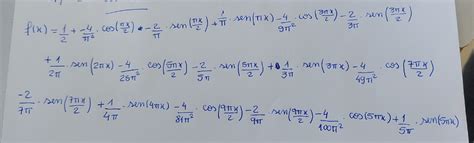 f(x) = 1/2 + -4/π² · cos(πx/2) · -2/π · sen(πx/2) + 1/π · sen(πx) -4/9π² · cos(3πx/2) -2/3π · sen(3πx/2)
+1/2π · sen(2πx) -4/25π² · cos(5πx/2) -2/5π · sen(5πx/2) + 1/3π · sen(3πx) -4/49π² · cos(7πx/2)
-2/7π · sen(7πx/2) + 1/4π · sen(4πx) -4/81π² · cos(9πx/2) -2/9π · sen(9πx/2) -4/100π² · cos(5πx) + 1/5π · sen(5πx)